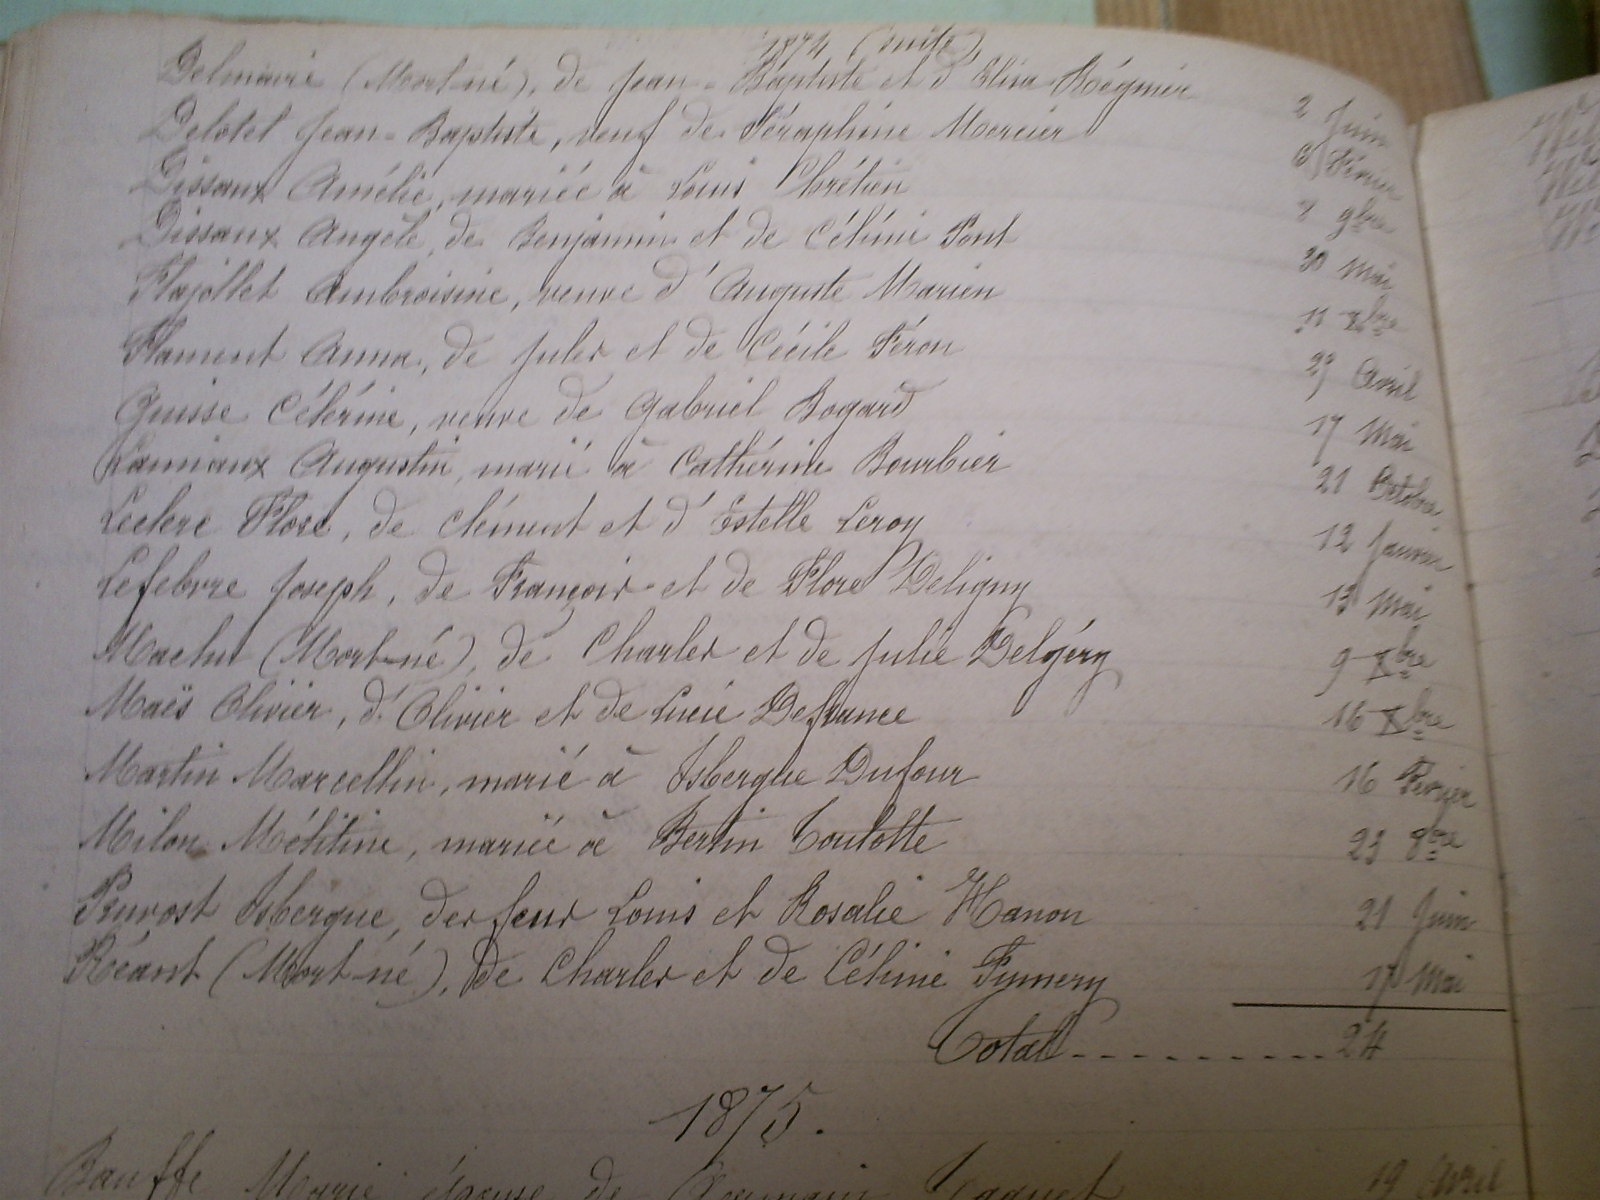 1874 (suite)
Delmaire (Mort-né), de Jean-Baptiste et d'Elisa Régnier 2 Juin
Delotel Jean-Baptiste, veuf de Séraphine Mercier 6 Février
Dissaux Amélie, mariée à Louis Chrétien 8 9bre
Dissaux Angèle, de Benjamin et de Célinie Pont 30 Mai
Flajollet Ambroisine, veuve d'Auguste Marien 11 Xbre
Flament Anna, de Jules et de Cécile Féron 29 Avril
Guisse Célérine, veuve de Gabriel Bogard 17 Mai
Lamiaux Augustin, marié à Cathérine Bourbier 21 Octobre
Leclerc Flore, de Clément et d'Estelle Leroy 12 Janvier
Lefebvre Joseph, de François et de Flore Deligny 13 Mai
Machu (Mort-né), de Charles et de Julie Delgéry 9 Xbre
Maës Olivier, d'Olivier et de Lucie Defrance 16 Xbre
Martin Marcellin, marié à Isbergue Dufour 16 Février
Milon Métitine, mariée à Bertin Toulotte 23 8bre
Pruvost Isbergue, des feus Louis et Rosalie Hanon 21 Juin
Réant (Mort-né), de Charles et de Célinie Fumery 17 Mai
Total 24
1875.
Bauffe Marie épouse de Romain Taquet 19 Avril